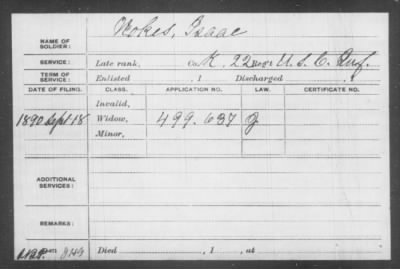 Nokes, Isaac
NAME OF SOLDIER:
SERVICE: Late rank, Co. K, 22 Reg't U.S.C. Inf.
TERM OF SERVICE: Enlisted , 1 Discharged , 1
DATE OF FILING. CLASS. APPLICATION NO. LAW. CERTIFICATE NO.
Invalid,
1890 Sept 18 Widow, 499.637
Minor,
ADDITIONAL SERVICES:
REMARKS:
Died , 1 , at